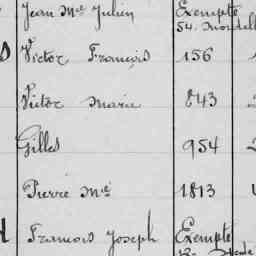 Jean Mie Julien Exempté
54.
Victor François 156
Victor Marie 843
Gilles 954
Pierre Mie 1813
François Joseph Exempté